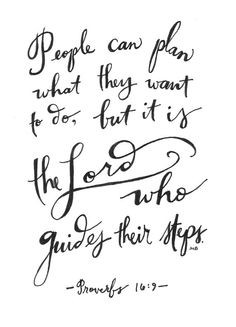 People can plan
what they want
to do, but it is
the Lord
who
guides their steps.
-Proverbs 16:9-